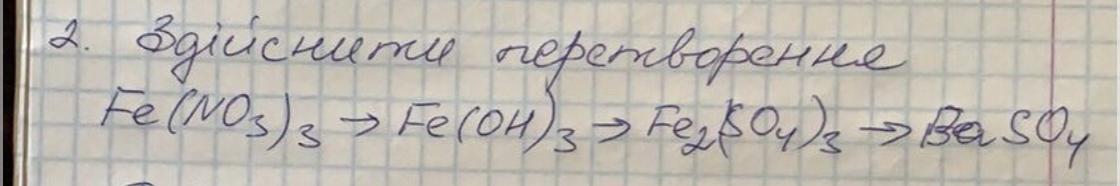 2. Здійснити перетворення
Fe(NO₃)₃ → Fe(OH)₃ → Fe₂(SO₄)₃ → BaSO₄